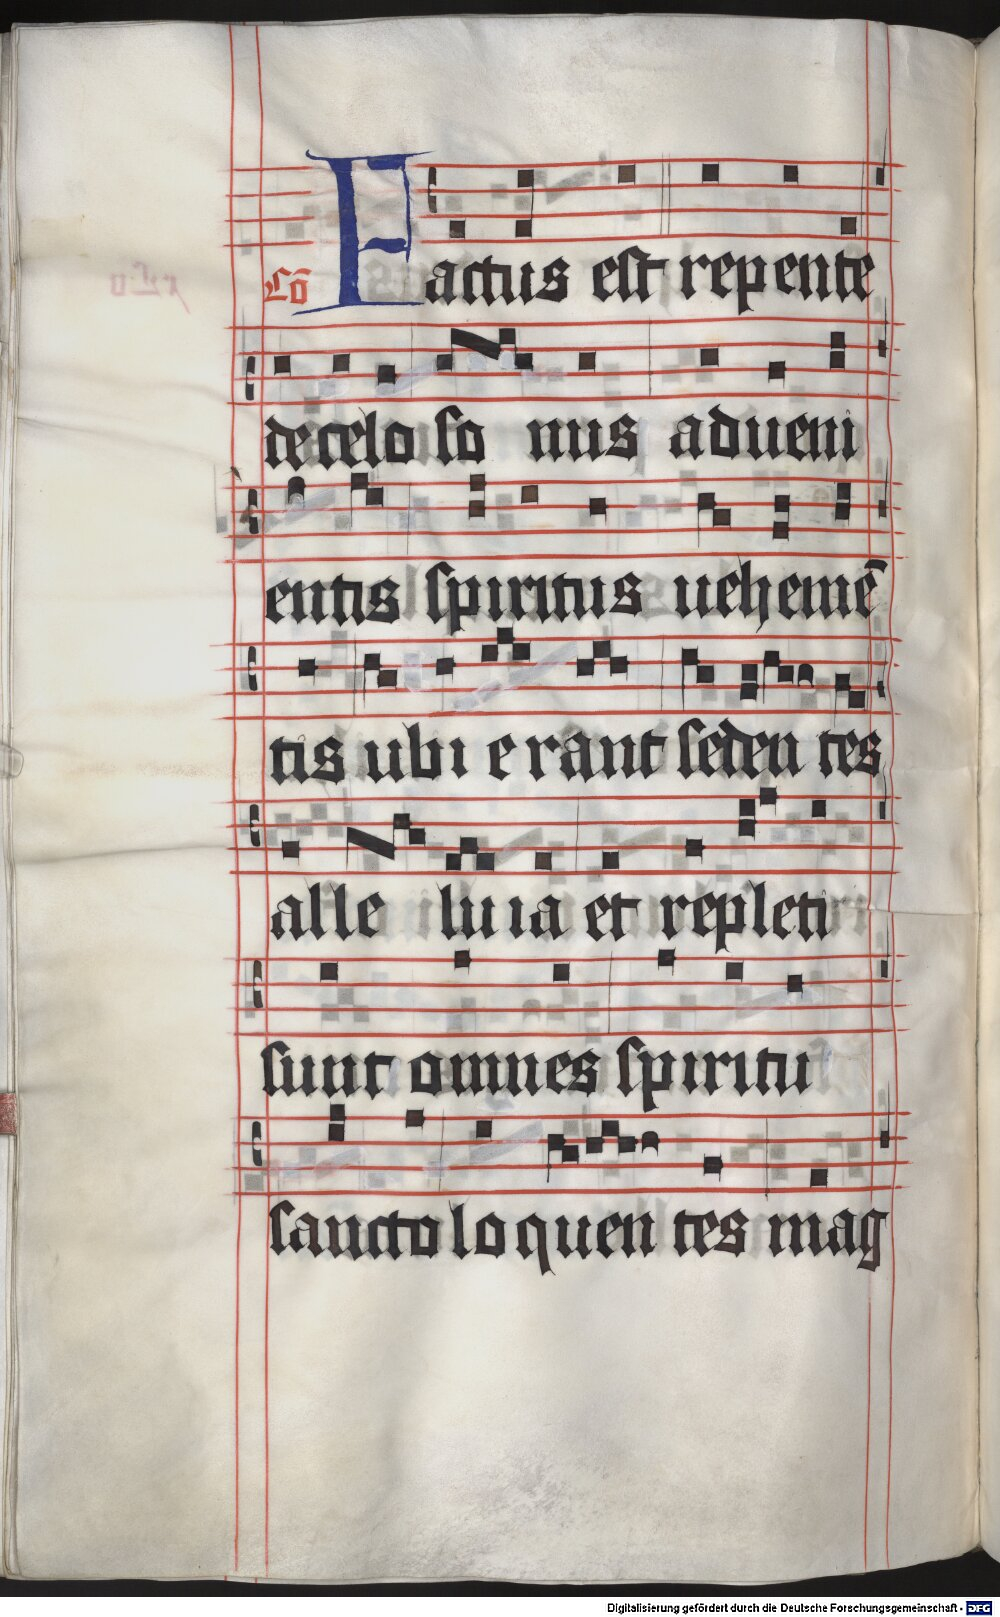 Cō Factus est repente
de celo so nus adueni
entis spiritus uehemē
tis ubi erant seden tes
alle luia et repleti
sunt omnes spiritu
sancto loquen tes mag
Digitalisierung gefördert durch die Deutsche Forschungsgemeinschaft - DFG